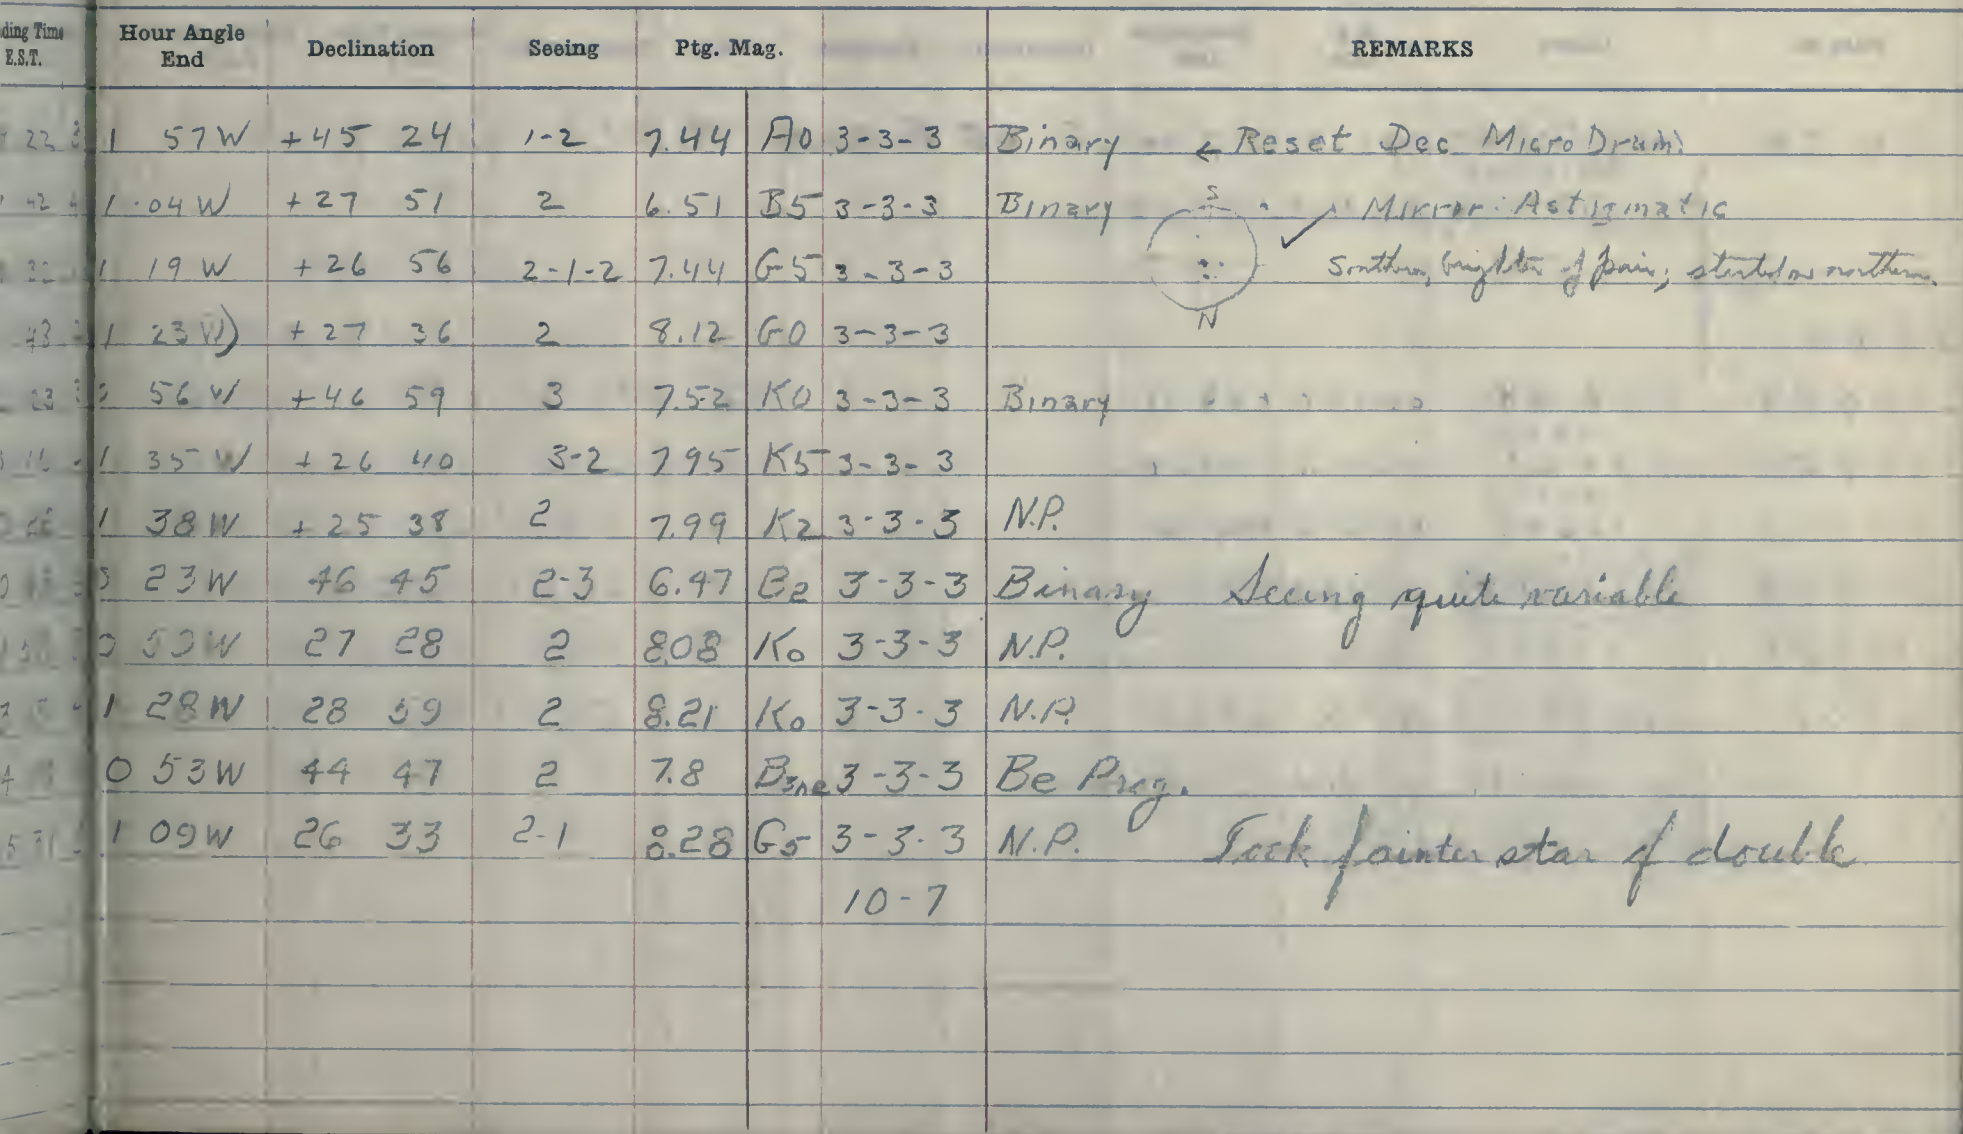 ding Time E.S.T. Hour Angle End Declination Seeing Ptg. Mag. REMARKS
22 1 57W +45 24 1-2 7.44 A0 3-3-3 Binary ← Reset Dec MicroDrum
42 1 04W +27 51 2 6.51 B5 3-3-3 Binary S Mirror Astigmatic
1 19 W +26 56 2-1-2 7.44 G5 3-3-3 Southern, brighter of pair; started on northern
43 1 23W) +27 36 2 8.12 G0 3-3-3 N
56 W +46 59 3 7.52 K0 3-3-3 Binary
1 35 W +26 40 3-2 7.95 K5 3-3-3
1 38W +25 38 2 7.99 K2 3-3-3 N.P.
23W 46 45 2-3 6.47 B2 3-3-3 Binary Seeing quite variable
0 W 27 28 2 8.08 K0 3-3-3 N.P.
1 28W 28 59 2 8.21 K0 3-3-3 N.P.
0 53W 44 47 2 7.8 B3ne 3-3-3 Be Prog.
1 09W 26 33 2-1 8.28 G5 3-3-3 N.P. Took fainter star of double
10-7